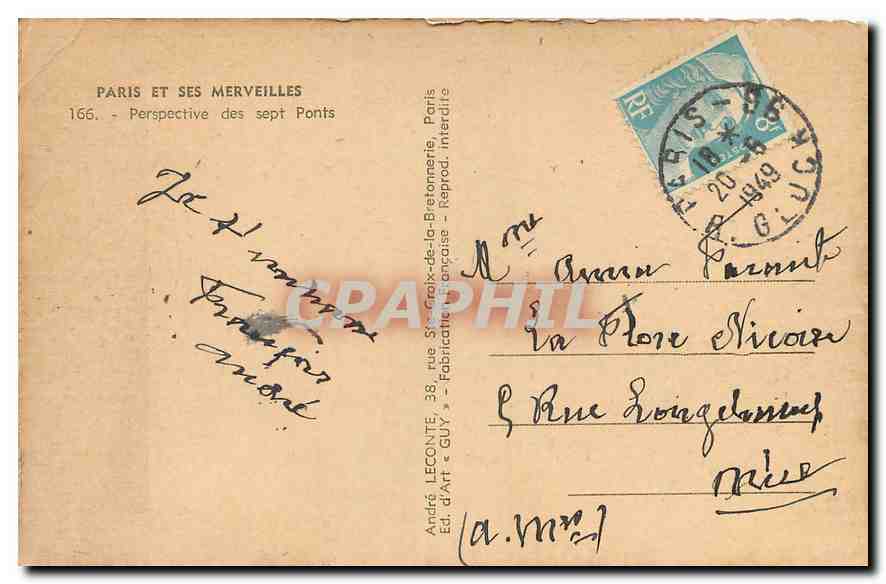 PARIS ET SES MERVEILLES
166. - Perspective des sept Ponts
André
André LECONTE, 38, rue Ste-Croix-de-la-Bretonnerie, Paris
Ed. d'Art « GUY » - Fabrication Française - Reprod. interdite
CPAPHIL
RF
8F
PARIS - 96
R. GLUCK
18 *
20 - 6
1949
Mme
La Flore Niçoise
5 Rue
Nice
(A. Mmes)